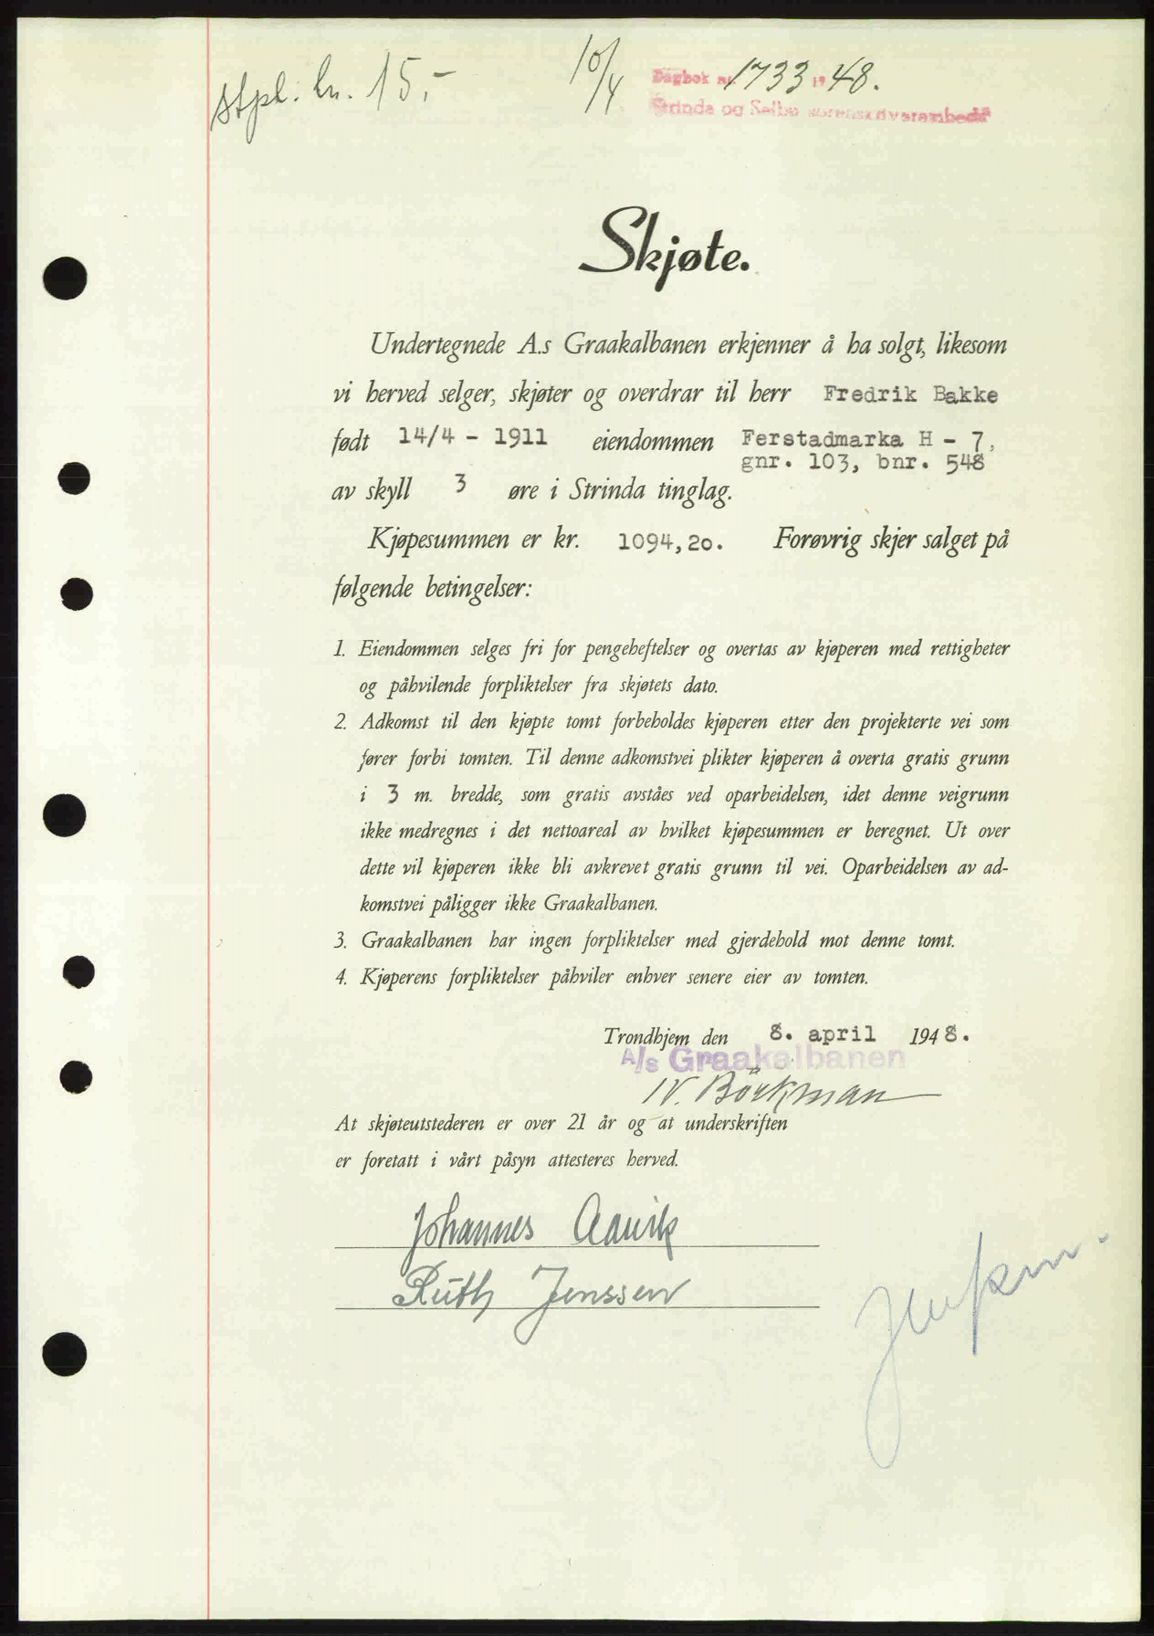 stpl. kr. 15,-
10/4
Dagbok nr. 1733 19 48.
Strinda og Selbu sorenskriverembede
Skjøte.
Undertegnede A.s Graakalbanen erkjenner å ha solgt, likesom
vi herved selger, skjøter og overdrar til herr Fredrik Bakke
født 14/4 - 1911 eiendommen Ferstadmarka H - 7,
gnr. 103, bnr. 548
av skyll 3 øre i Strinda tinglag.
Kjøpesummen er kr. 1094,20. Forøvrig skjer salget på
følgende betingelser:
1. Eiendommen selges fri for pengeheftelser og overtas av kjøperen med rettigheter
og påhvilende forpliktelser fra skjøtets dato.
2. Adkomst til den kjøpte tomt forbeholdes kjøperen etter den projekterte vei som
fører forbi tomten. Til denne adkomstvei plikter kjøperen å overta gratis grunn
i 3 m. bredde, som gratis avståes ved oparbeidelsen, idet denne veigrunn
ikke medregnes i det nettoareal av hvilket kjøpesummen er beregnet. Ut over
dette vil kjøperen ikke bli avkrevet gratis grunn til vei. Oparbeidelsen av ad-
komstvei påligger ikke Graakalbanen.
3. Graakalbanen har ingen forpliktelser med gjerdehold mot denne tomt.
4. Kjøperens forpliktelser påhviler enhver senere eier av tomten.
Trondhjem den 8. april 1948.
A/s Graakalbanen
N. Börkman
At skjøteutstederen er over 21 år og at underskriften
er foretatt i vårt påsyn attesteres herved.
Johannes Aavik
Ruth Jenssen